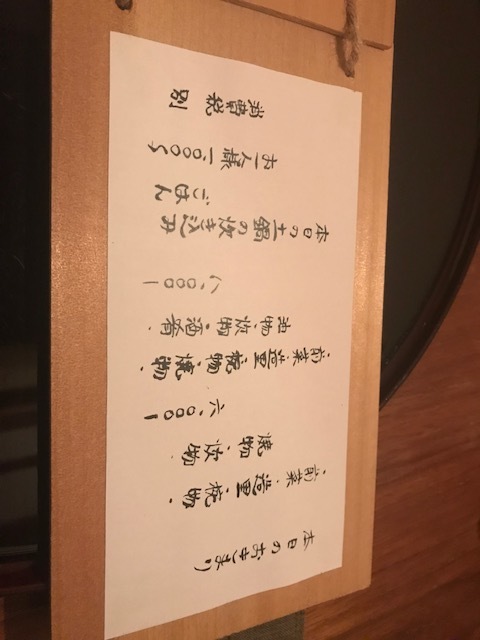 本日のおきまり
・前菜・造里・椀物・
焼物・炊物
六、〇〇〇ー
・前菜・造里・椀物・焼物・
油物・炊物・酒肴・
八、〇〇〇ー
本日の土鍋の炊き込み
ごはん
お一人様一、〇〇〇〜
消費税別